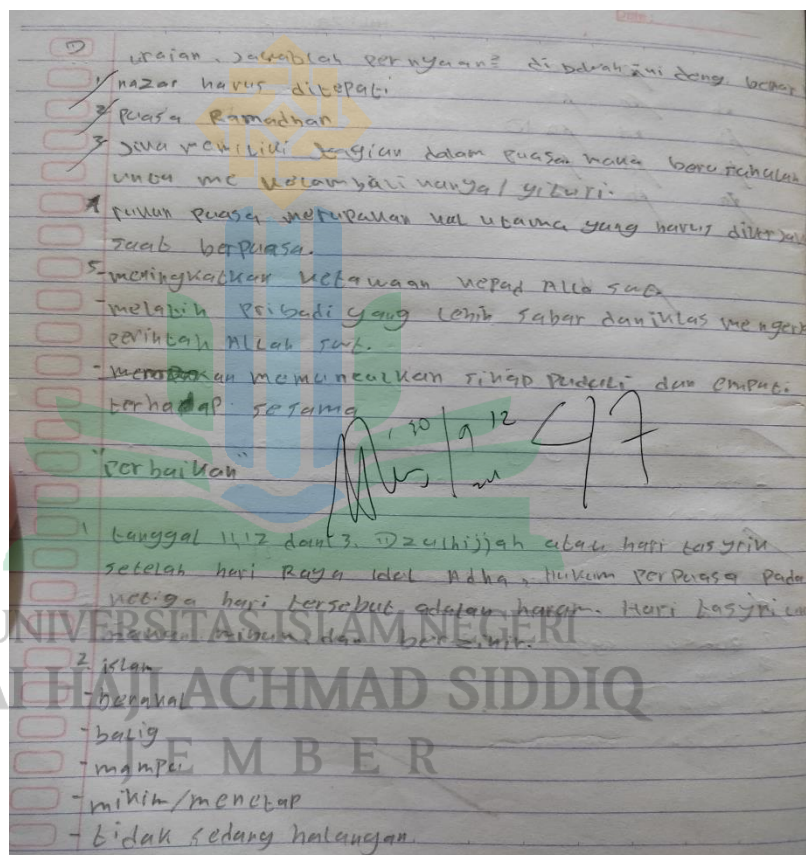 uraian. Jawablah pernyaan² di bawah ini deng benar
1/ nazar harus ditepati
2/ puasa Ramadhan
3 Jika memiliki dalam puasa maka
4 rukun puasa merupakan hal utama yang harus
saat berpuasa.
5-meningkatkan ketawaan kepad Alla swt.
-melatih pribadi yang lebih sabar dan iklas mengerj
perintah Allah swt.
- memunculkan sikap puduli dan empati
terhadap sesama
30/9 12 47
"perbaikan"
1 tanggal 11,12 dan 13. Dzulhijjah atau hari tasyrik
setelah hari Raya Idul Adha, Hukum perpuasa pada
ketiga hari tersebut adalah haram. Hari tasyri
makan minum dan berzikir.
2. islam
-berakal
-balig
-mampu
-mikim/menetap
- tidak sedang halangan.
UNIVERSITAS ISLAM NEGERI
AI HAJI ACHMAD SIDDIQ
JEMBER